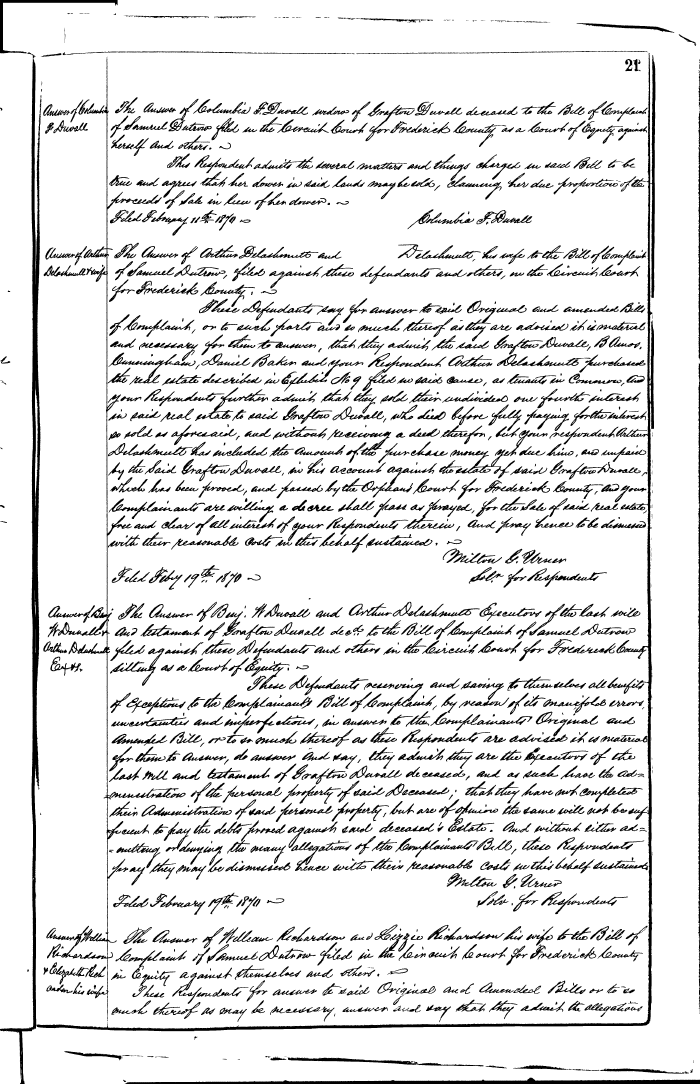 21
Answer of Columbia
F Duvall
The Answer of Columbia F. Duvall widow of Grafton Duvall deceased to the Bill of Complaint
of Samuel Dutrow filed in the Circuit Court for Frederick County, as a Court of Equity, against
herself and others. ~
This Respondent admits the several matters and things charged in said Bill to be
true and agrees that her dower in said lands may be sold, claiming her due proportion of the
proceeds of sale in lieu of her dower. ~
Filed February 11th 1870 ~ Columbia F. Duvall
Answer of Arthur
Delashmutt & wife
The Answer of Arthur Delashmutt and Delashmutt, his wife to the Bill of Complaint
of Samuel Dutrow, filed against these defendants and others, in the Circuit Court
for Frederick County. ~
These Defendants say for answer to said Original and amended Bills
of Complaint, or to such parts and so much thereof as they are advised it is material
and necessary for them to answer, that they admit the said Grafton Duvall, B Amos.
Cunningham, Daniel Baker and your Respondent Arthur Delashmutt purchased
the real estate described in Exhibit No 9 filed in said cause, as tenants in Common, and
your Respondents further admit that they sold their undivided one fourth interest
in said real estate, to said Grafton Duvall, who died before fully paying for the interest
so sold as aforesaid, and without receiving a deed therefor, but your respondent Arthur
Delashmutt has included the amount of the purchase money yet due him, and unpaid
by the said Grafton Duvall, in his account against the estate of said Grafton Duvall,
which has been proved, and passed by the Orphans Court for Frederick County, and your
Complainants are willing a decree shall pass as prayed, for the Sale of said real estate,
free and clear of all interest of your Respondents therein, and pray hence to be dismissed
with their reasonable costs in this behalf sustained. ~
Milton G. Urner
Filed Feby 19th 1870 ~ Solr for Respondents
Answer of Benj
W Duvall &
Arthur Delashmutt
Exrs.
The Answer of Benj. W Duvall and Arthur Delashmutt Executors of the last will
and testament of Grafton Duvall decd. to the Bill of Complaint of Samuel Dutrow
filed against these Defendants and others in the Circuit Court for Frederick County
sitting as a Court of Equity. ~
These Defendants reserving and saving to themselves all benefits
of exceptions to the Complainant's Bill of Complaint, by reason of its manifold errors,
uncertainties and imperfections, in answer to the Complainants Original and
Amended Bill, or to so much thereof as these Respondents are advised it is material
for them to Answer, do answer and say, they admit they are the Executors of the
last will and testament of Grafton Duvall deceased, and as such have the ad-
-menestration of the personal property of said Deceased; that they have not completed
their Administration of said personal property, but are of opinion the same will not be suf-
-ficient to pay the debts proved against said deceased's Estate. And without either ad-
-mitting or denying the many allegations of the Complainants Bill, these Respondents
pray they may be dismissed hence with their reasonable costs in this behalf sustained
Milton G. Urner
Filed February 19th 1870 ~ Solr. for Respondents
Answer of William
Richardson
& Elizabeth Rich
ardson his wife
The Answer of William Richardson and Lizzie Richardson his wife to the Bill of
Complaint of Samuel Dutrow filed in the Circuit Court for Frederick County
in Equity against themselves and others. ~
These Respondents for answer to said Original and Amended Bills or to so
much thereof as may be necessary, answer and say that they admit the allegations